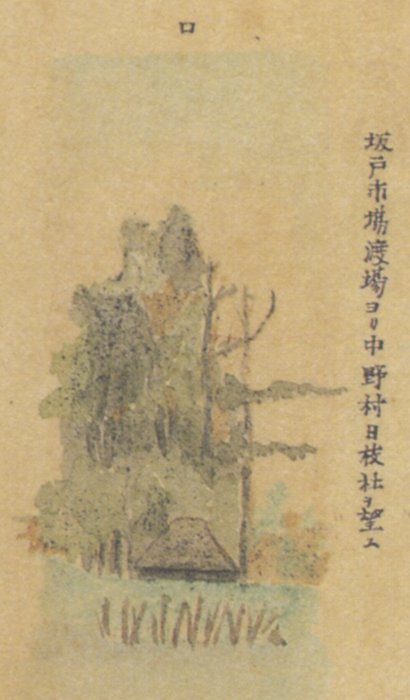 ロ
坂戸市場渡場ヨリ中野村日枝社ヲ望ム